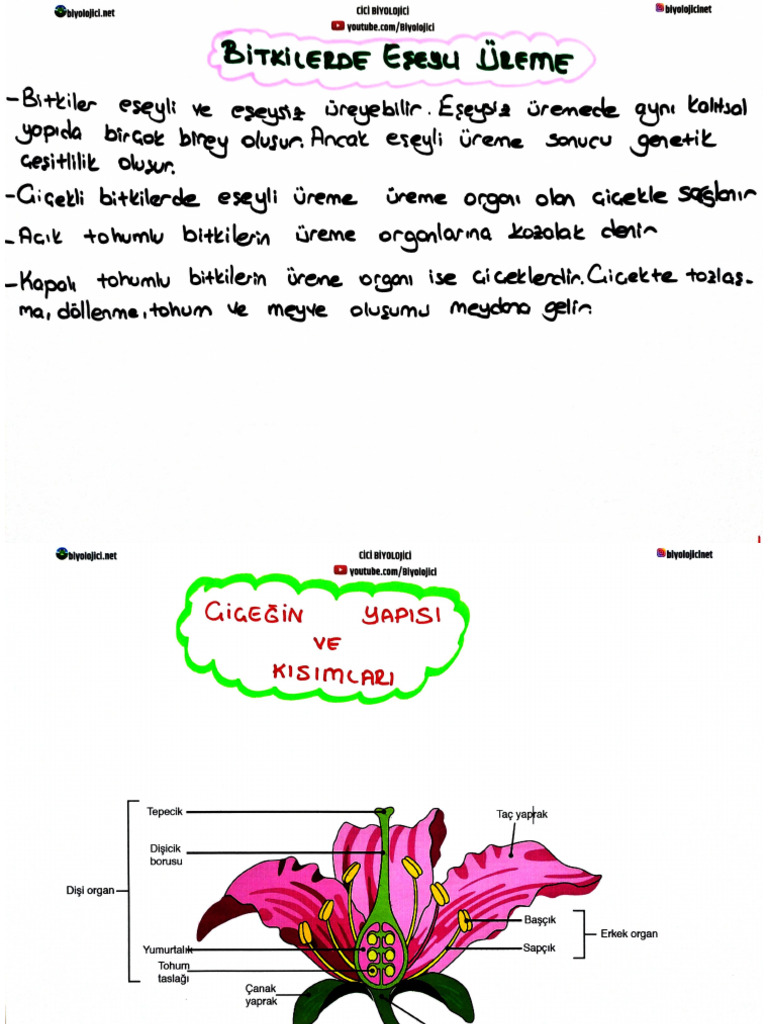 biyolojici.net
CİCİ BİYOLOJİCİ
youtube.com/Biyolojici
biyolojicinet
BİTKİLERDE EŞEYLİ ÜREME
-Bitkiler eşeyli ve eşeysiz üreyebilir. Eşeysiz üremede aynı kalıtsal
yapıda birçok birey oluşur. Ancak eşeyli üreme sonucu genetik
çeşitlilik oluşur.
-Çiçekli bitkilerde eşeyli üreme üreme organı olan çiçekle sağlanır
-Açık tohumlu bitkilerin üreme organlarına kozalak denir
-Kapalı tohumlu bitkilerin üreme organı ise çiçeklerdir. Çiçekte tozlaş-
ma, döllenme, tohum ve meyve oluşumu meydana gelir.
1
biyolojici.net
CİCİ BİYOLOJİCİ
youtube.com/Biyolojici
biyolojicinet
ÇİÇEĞİN YAPISI
VE
KISIMLARI
Tepecik
Taç yaprak
Dişicik
borusu
Dişi organ
Başçık
Erkek organ
Yumurtalık
Sapçık
Tohum
taslağı
Çanak
yaprak